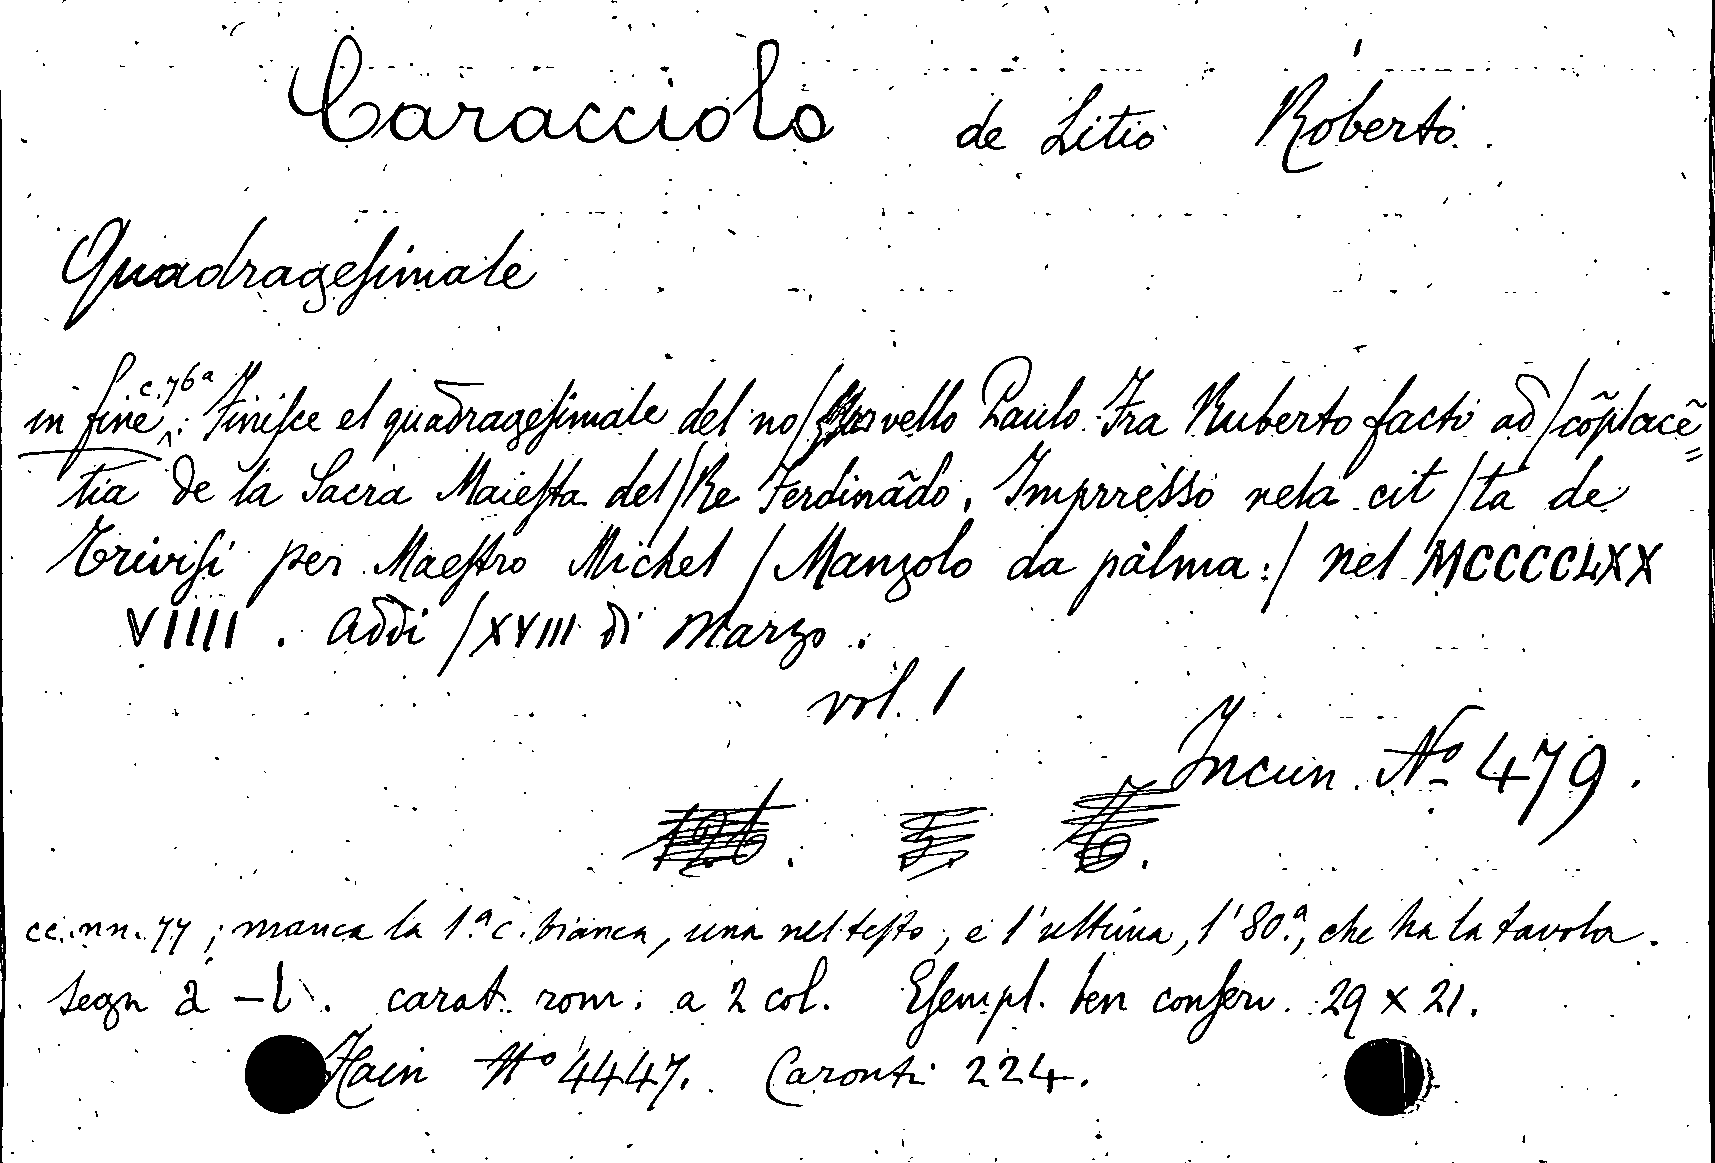 Caracciolo de Litio Roberto.
Quadragesimale
in fine c. 76ª: Finisce el quadragesimale del no/vello Paulo Fra Ruberto facto ad/cõplacẽ=
tia de la Sacra Maiesta del/Re Ferdinãdo. Imprresso nela cit/ta de
Trivisi per Maestro Michel/Manzolo da palma:/nel MCCCCLXX
VIIII. Addi/XVIII di Marzo.
vol. 1
Incun. Nº 479.
cc. nn. 77; manca la 1.ª c. bianca, una nel testo, e l'ultima, l'80.ª, che ha la tavola.
segn a – l. carat. rom. a 2 col. Esempl. ben conserv. 29 x 21.
Hain Nº 4447. Caronti 224.